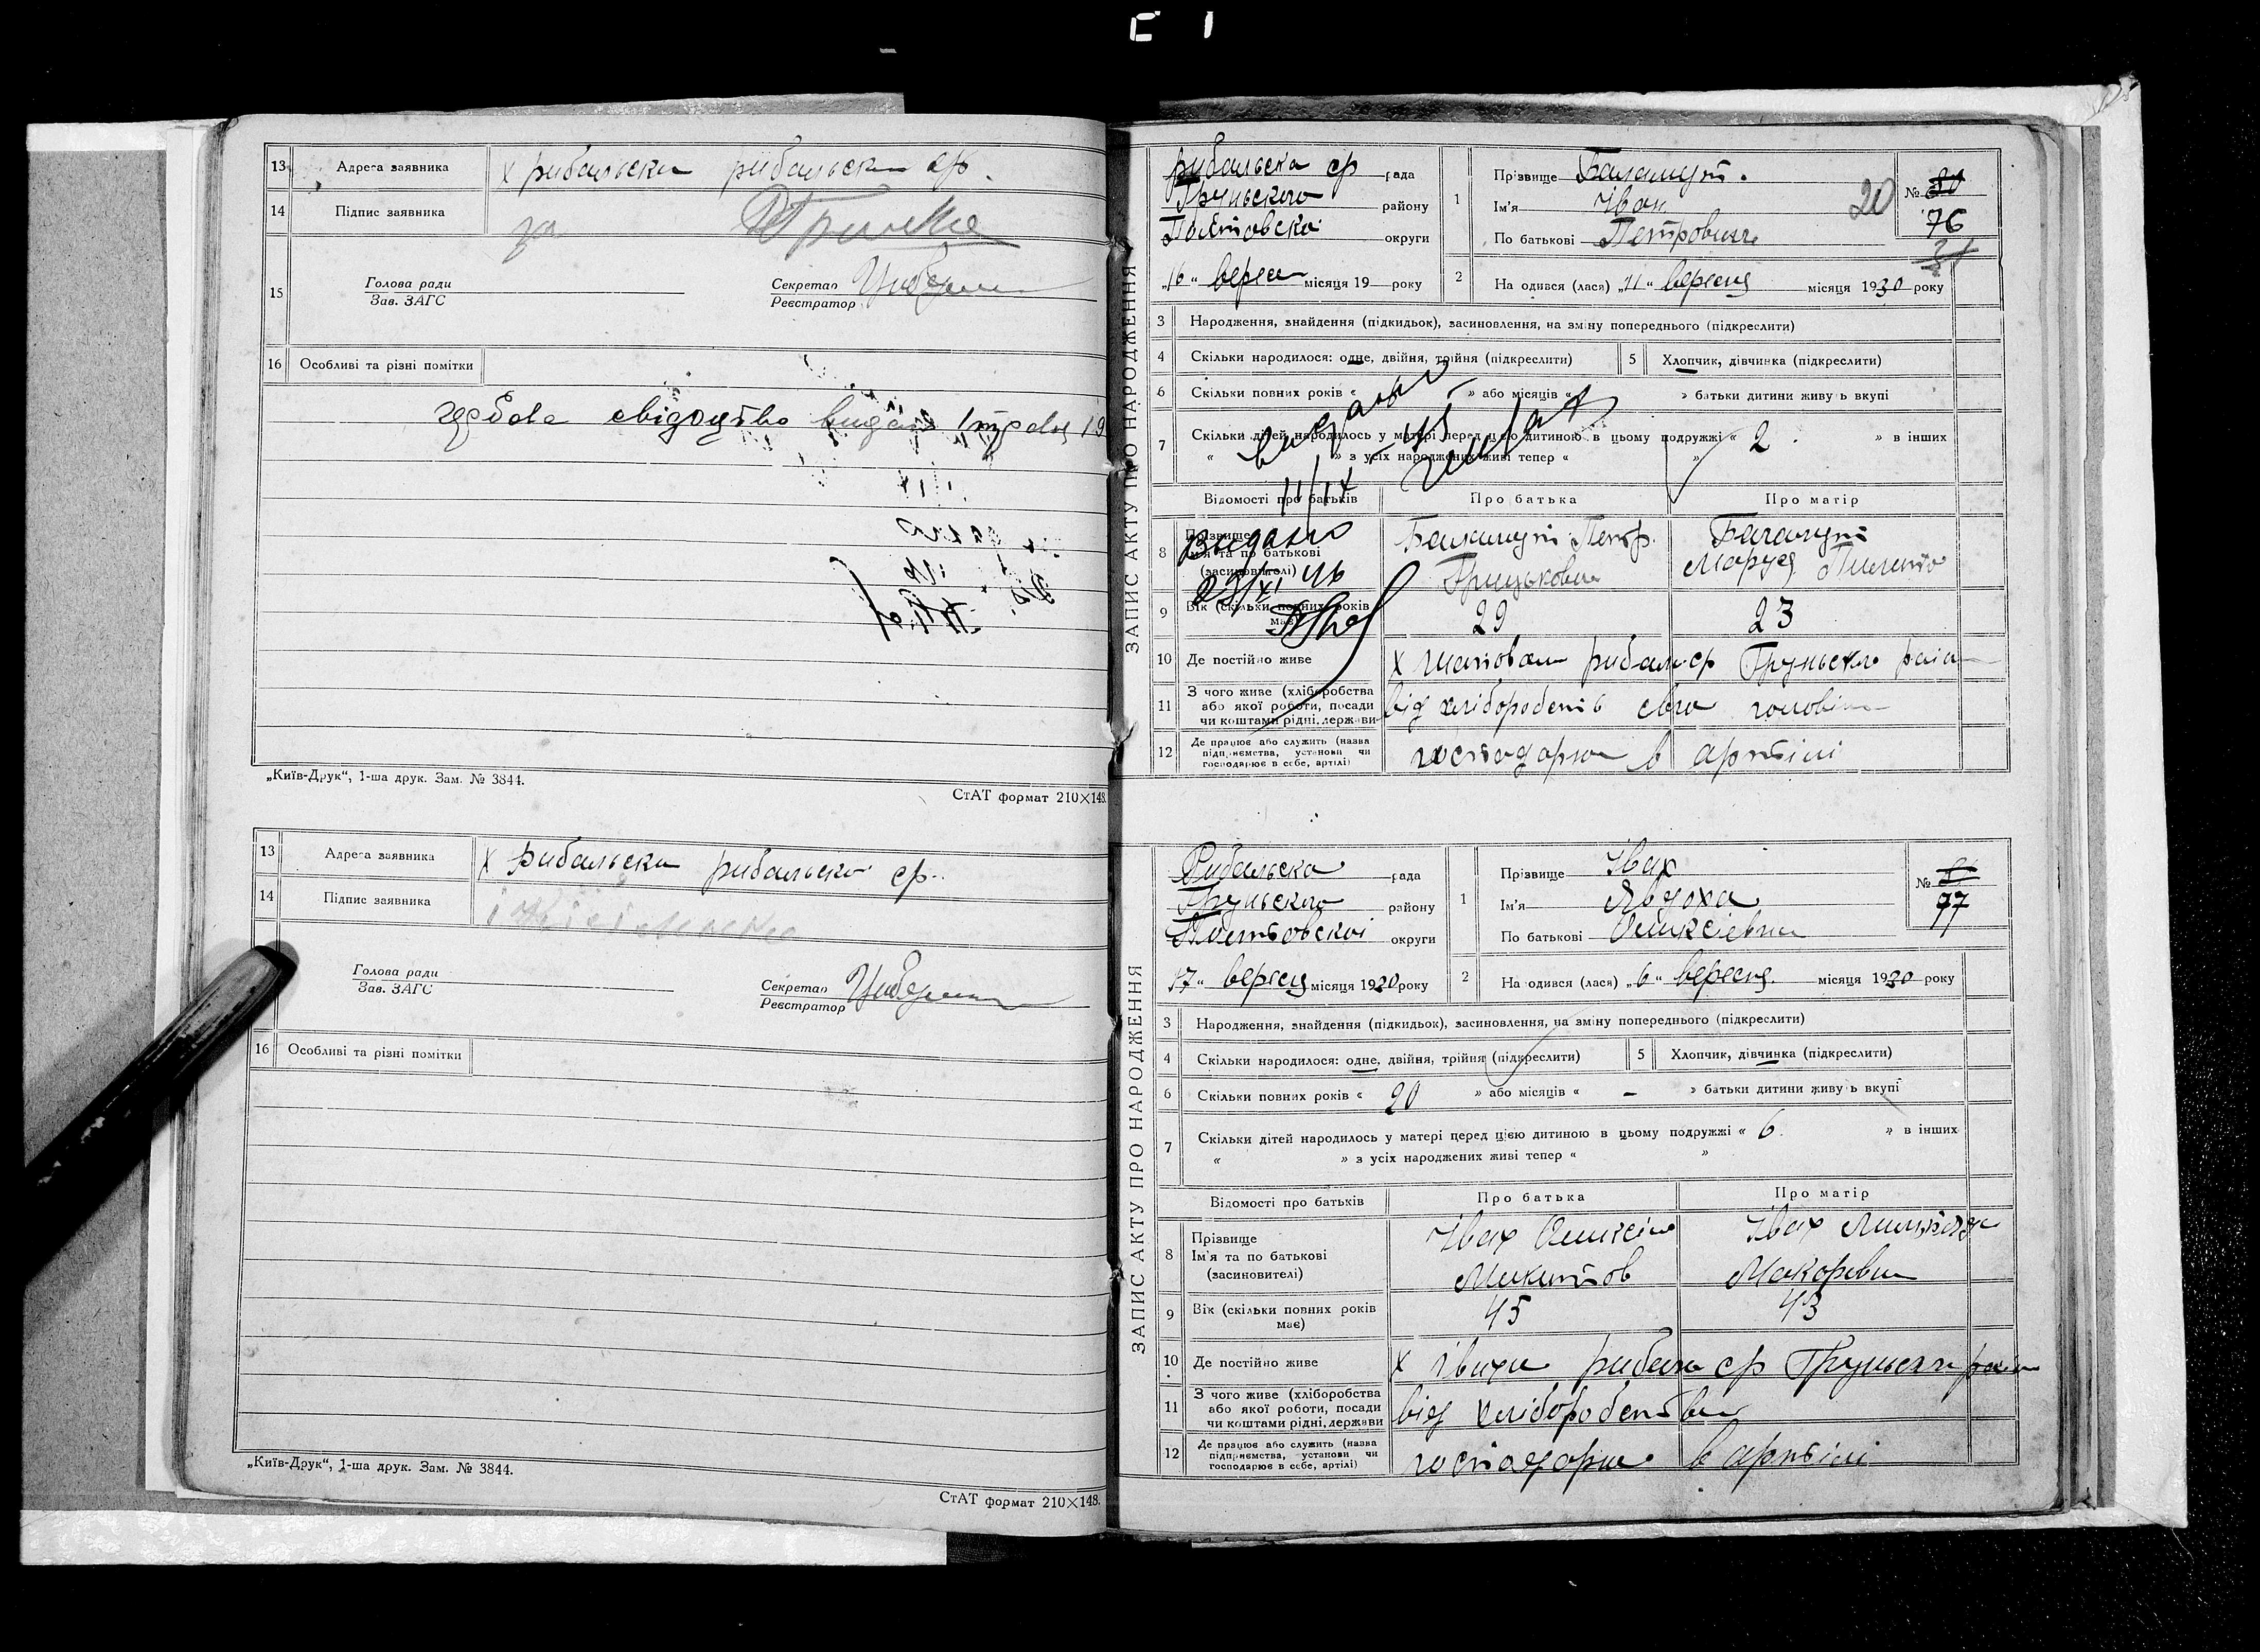 13 Адреса заявника х рибальски рибальски ср.
14 Підпис заявника за
15 Голова ради
Зав. ЗАГС
Секретар
Реєстратор
16 Особливі та різні помітки
свідоцтво видано
„Київ-Друк“, 1-ша друк. Зам. № 3844.
СтАТ формат 210×148.
13 Адреса заявника х рибальски рибальски ср.
14 Підпис заявника
Голова ради
Зав. ЗАГС
Секретар
Реєстратор
16 Особливі та різні помітки
„Київ-Друк“, 1-ша друк. Зам. № 3844.
СтАТ формат 210×148.
ЗАПИС АКТУ ПРО НАРОДЖЕННЯ
рибальска ср рада
Груньского району
округи
„16“ верес місяця 19 року
1 Прізвище Баламут.
Ім'я Іван
По батькові Петрович
20
№ 80
76
2 На одився (лася) „11“ вересня місяця 1930 року
3 Народження, знайдення (підкидьок), засиновлення, на зміну попереднього (підкреслити)
4 Скільки народилося: одне, двійня, трійня (підкреслити) 5 Хлопчик, дівчинка (підкреслити)
6 Скільки повних років « » або місяців « » батьки дитини живуь вкупі
7 Скільки дітей народилось у матері перед цією дитиною в цьому подружжі « 2 » в інших
« » з усіх народжених живі тепер « »
видано
11/IX - 45
Відомості про батьків Про батька Про матір
8 Прізвище
Ім'я та по батькові
(засновителі)
Баламут Петр.
Грицькович
Баламут
Маруся
Видано
23/XI 46
9 Вік (скільки повних років має) 29 23
10 Де постійно живе х рибальс ср Груньского рай
11 З чого живе (хліборобства
або якої роботи, посади
чи коштами рідні, держави
від хліборобств
12 Де працює або служить (назва
підприємства, установи чи
господарює в себе, артілі)
господарю в артілі
ЗАПИС АКТУ ПРО НАРОДЖЕННЯ
Рибальска рада
Груньского району
округи
„17“ вересня місяця 1930 року
1 Прізвище Івах
Ім'я Явдоха
По батькові Оликсієвни
№ 81
77
2 На одився (лася) „6“ вересня. місяця 1930 року
3 Народження, знайдення (підкидьок), засиновлення, на зміну попереднього (підкреслити)
4 Скільки народилося: одне, двійня, трійня (підкреслити) 5 Хлопчик, дівчинка (підкреслити)
6 Скільки повних років « 20 » або місяців « – » батьки дитини живуь вкупі
7 Скільки дітей народилось у матері перед цією дитиною в цьому подружжі « 6 » в інших
« » з усіх народжених живі тепер « »
Відомості про батьків Про батька Про матір
8 Прізвище
Ім'я та по батькові
(засновителі)
Івах Оликсій
Микитов
Івах
Макоревна
9 Вік (скільки повних років має) 45 43
10 Де постійно живе х івахи рибаль ср Груньского район
11 З чого живе (хліборобства
або якої роботи, посади
чи коштами рідні, держави
від хліборобства
12 Де працює або служить (назва
підприємства, установи чи
господарює в себе, артілі)
господарю в артілі